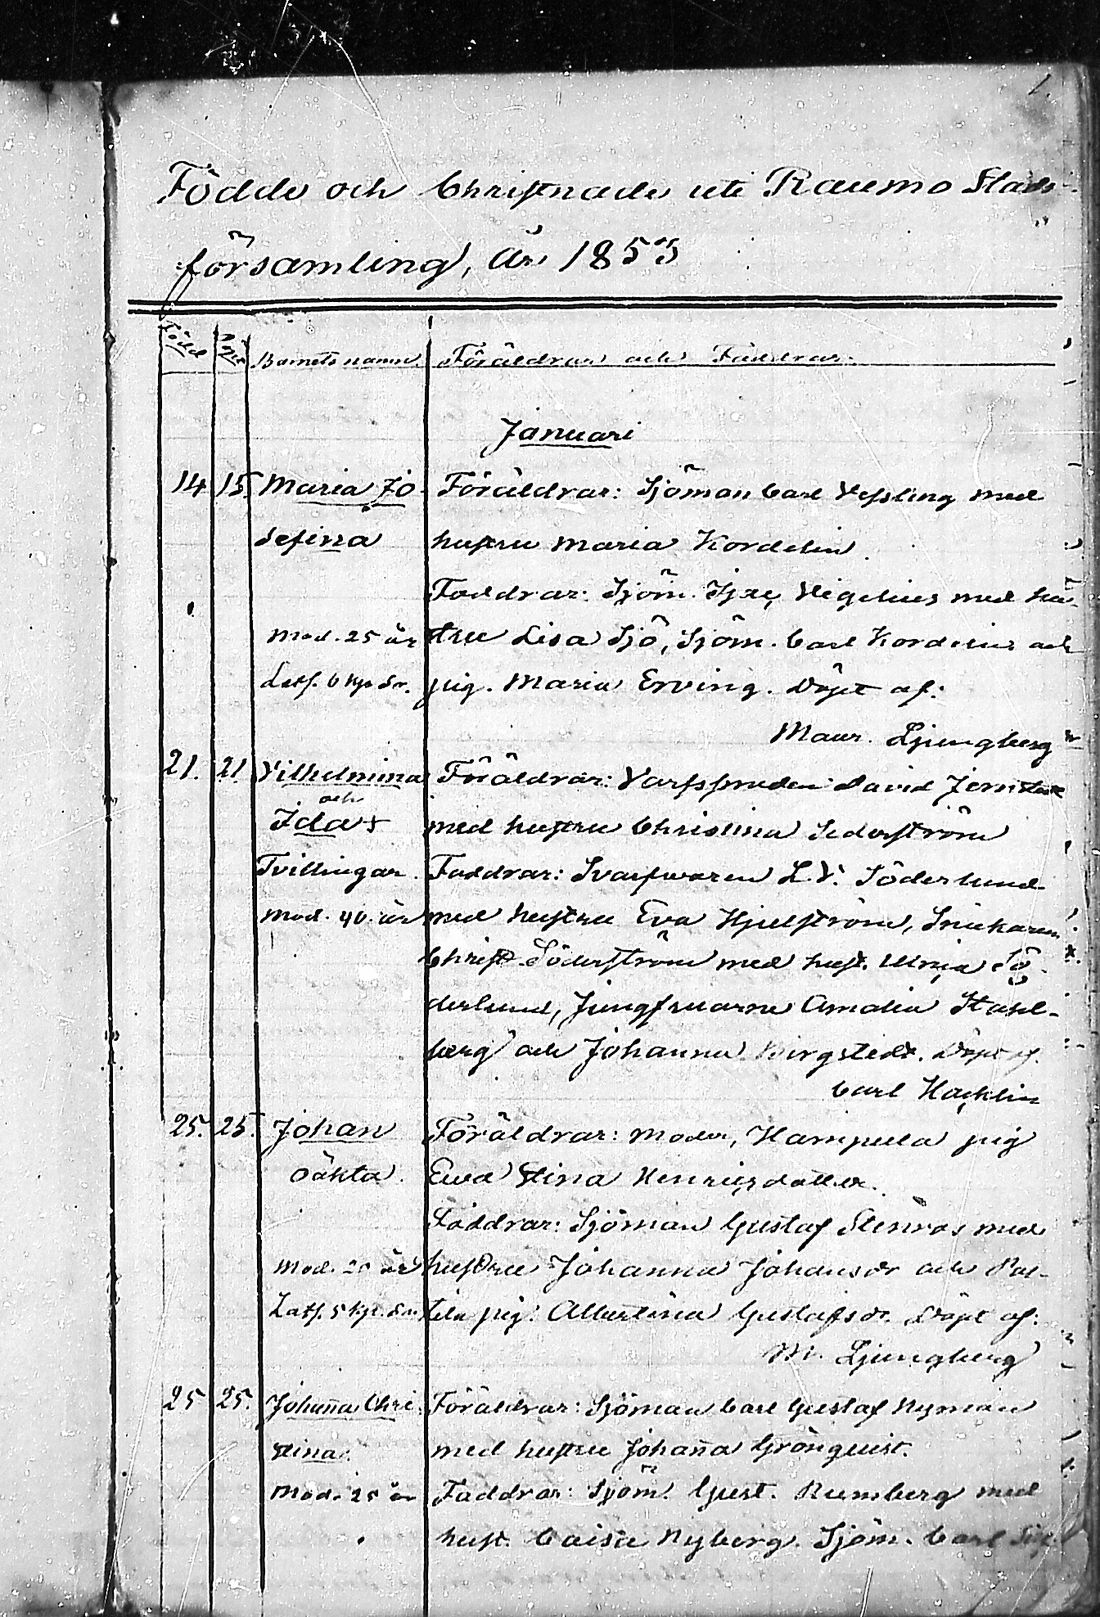 1.
Födde och Christnade uti Raumo Stads
församling, År 1853
Född Döpt Barnets namn. Föräldrar och Faddrar.
Januari
14 15. Maria Jo- Föräldrar: Sjöman Carl Vessling med
sefina hustru Maria Kordelin.
Faddrar: Sjöm. Vigelius med hu-
Mod. 25 år stru Lisa Sjö, Sjöm. Carl Kordelin och
pig. Maria Erving. Döpt af:
Maur. Ljungberg
21. 21 Vilhelmina Föräldrar: David
och
Ida + med hustru Christina Sederström
Tvillingar. Faddrar: Svarfvaren L.V. Söderlund
Mod. 40 år med hustru Eva Hjelström, Snickaren
Christ. Söderström med hust. Ulrica Sö-
derlund, Jungfruarne Amalia Stahl-
berg och Johanna Birgstedt. Döpt af.
Carl Hacklin
25. 25. Johan Föräldrar: Moder, Hampula pig
oäkta. Eva Stina Henricsdotter.
Faddrar: Sjöman Gustaf Stenros med
Mod. 20 år hustru Johanna Johansdr och
pig: Albertina Gustafsdr. Döpt af:
M. Ljungberg
25 25. Johanna Chri- Föräldrar: Sjöman Carl Gustaf Nyman
stina. med hustru Johanna Grönquist.
Mod. 25 år Faddrar: Sjöm. Gust. Rumberg med
hust. Caisa Nyberg. Sjöm. Carl